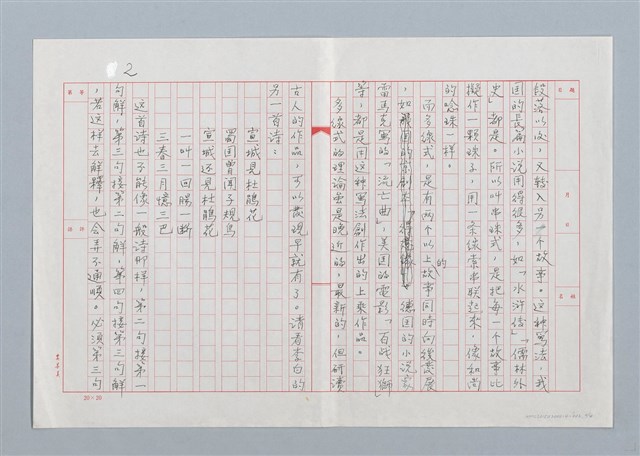 2
段落以後，又轉入另一个故事。这种寫法，我
国的長篇小说用得很多，如「水滸传」「儒林外
史」都是。所以叫串珠式，是把每一个故事比
擬作一顆珠子，用一条線索串联起来，像和尚
的唸珠一样。
而多線式，是有两个以上的故事同時向後發展
，如德国的小说家
雷馬克寫的「流亡曲」，美国的電影「百战狂獅」
等，都是用这种寫法創作出的上乘作品。
多線式的理論虽是晚近的，最新的，但研讀
古人的作品，可以發現早就有了。請看李白的
另一首诗：
宣城見杜鵑花
蜀国曾聞子規鳥
宣城还見杜鵑花
一叫一回腸一断
三春三月憶三巴
这首诗也不能像一般诗那样，第二句接第一
句解，第三句接第二句解，第四句接第三句解
，若这样去解釋，也会弄不通順。必須第三句
20×20